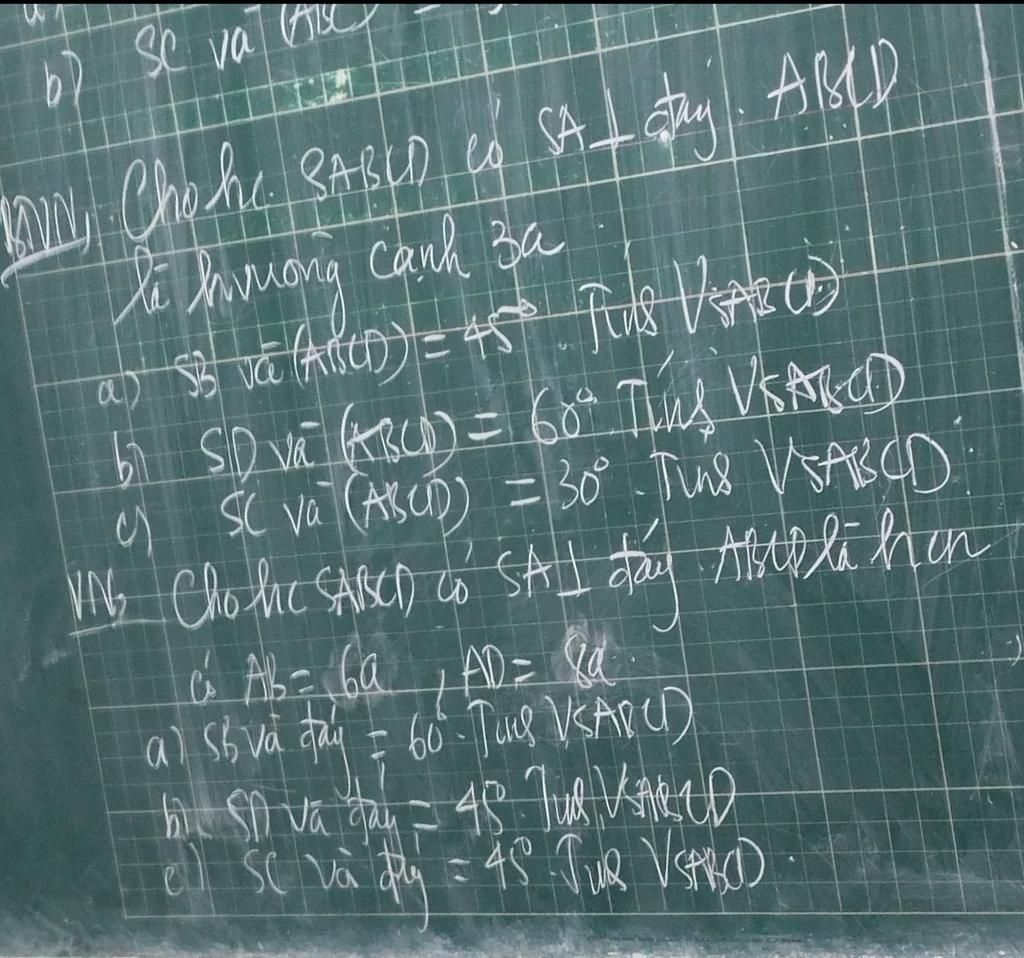 b) SC và (ABC)
BTVN, Cho hc SABCD có SA ⊥ đáy. ABCD
là hvuông cạnh 3a
a) SB và (ABCD) = 45° . Tính VSABCD
b) SD và (ABCD) = 60° Tính VSABCD
c) SC và (ABCD) = 30° . Tính VSABCD
VN2 Cho hc SABCD có SA ⊥ đáy ABCD là hcn
có AB = 6a , AD = 8a
a) SB và đáy = 60° . Tính VSABCD
b) SD và đáy = 45° Tính VSABCD
c) SC và đáy = 45° . Tính VSABCD .